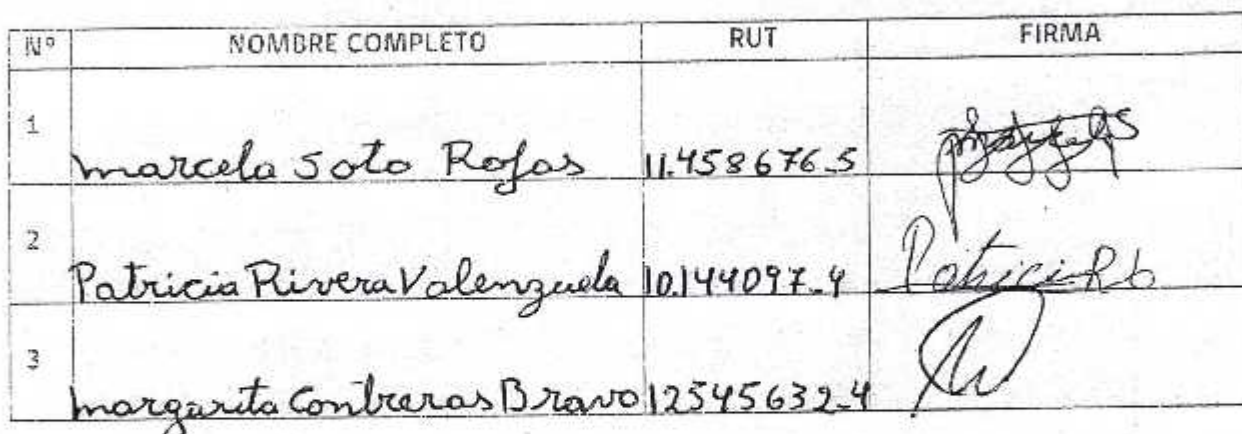 Nº NOMBRE COMPLETO RUT FIRMA
1 marcela Soto Rojas 11.458676-5
2 Patricia Rivera Valenzuela 10.144097-4
3 margarita Contreras Bravo 12545632-4